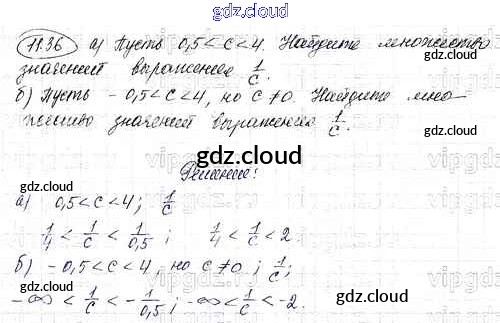 gdz.cloud
11.36 а) Пусть 0,5 < c < 4. Найдите множество
значений выражения 1/c.
б) Пусть - 0,5 < c < 4, но c ≠ 0. Найдите мно-
жество значений выражения 1/c.
gdz.cloud
gdz.cloud
gdz.cloud
Решение:
gdz.cloud
а) 0,5 < c < 4; 1/c
1/4 < 1/c < 1/0,5; 1/4 < 1/c < 2
gdz.cloud
б) - 0,5 < c < 4, но c ≠ 0; 1/c;
gdz.cloud
-∞ < 1/c < - 1/0,5; -∞ < 1/c < -2.
gdz.cloud